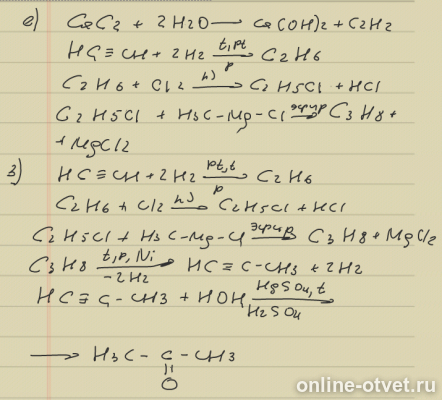 е) CaC2 + 2H2O → Ca(OH)2 + C2H2
HC≡CH + 2H2 t, pt → p C2H6
C2H6 + Cl2 hν → C2H5Cl + HCl
C2H5Cl + H3C-Mg-Cl эфир → C3H8 +
+ MgCl2
з) HC≡CH + 2H2 pt, t → p C2H6
C2H6 + Cl2 hν → C2H5Cl + HCl
C2H5Cl + H3C-Mg-Cl эфир → C3H8 + MgCl2
C3H8 t, p, Ni → -2H2 HC≡C-CH3 + 2H2
HC≡C-CH3 + HOH HgSO4, t → H2SO4
→ H3C-C-CH3
||
O
online-otvet.ru